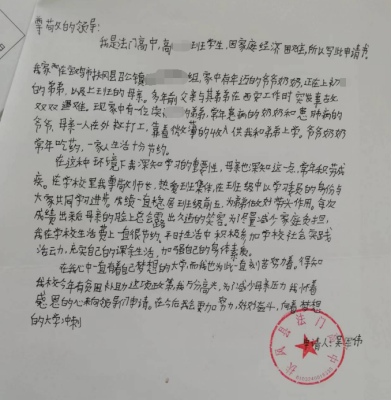 尊敬的领导:
我是法门高中,高 班学生,因家庭经济困难,所以写此申请书.
我家在宝鸡市扶风县召公镇 组,家中有年迈的爷爷奶奶,正在上初
的弟弟,以及上班的母亲。多年前父亲与其弟弟在西安工作时突发事故
双双遇难。现家中有一位 常年患病的奶奶和患肺病的
爷爷,母亲一人在外打工,靠着微薄的收入供我和弟弟上学。爷爷奶奶
常年吃药,一家人生活十分节约。
在这种环境下我深知学习的重要性,母亲也深知这一点,常年积劳成
疾。在学校里我尊敬师长,热爱班集体,在班级中以学习委员的身份与
大家共同学习进步,成绩一直稳居班级前五,为弟弟做好带头作用。每次
成绩出来后母亲的脸上总会露出欣慰的笑容,为尽量减少家庭负担,
我在学校生活费上一直很节约。平时生活中积极参加学校社会实践
活动,充实自己的课余生活,加强自己的身体素质。
在我心中一直有着自己梦想的大学,而我也为此一直刻苦努力着。得知
我校今年有贫困补助这项政策,我万分高兴,为了减少母亲压力,我怀着
感恩的心来向领导们申请。在今后我会更加努力,好好奋斗,向着梦想
的大学冲刺
申请人:吴 伟
扶风县法门高中